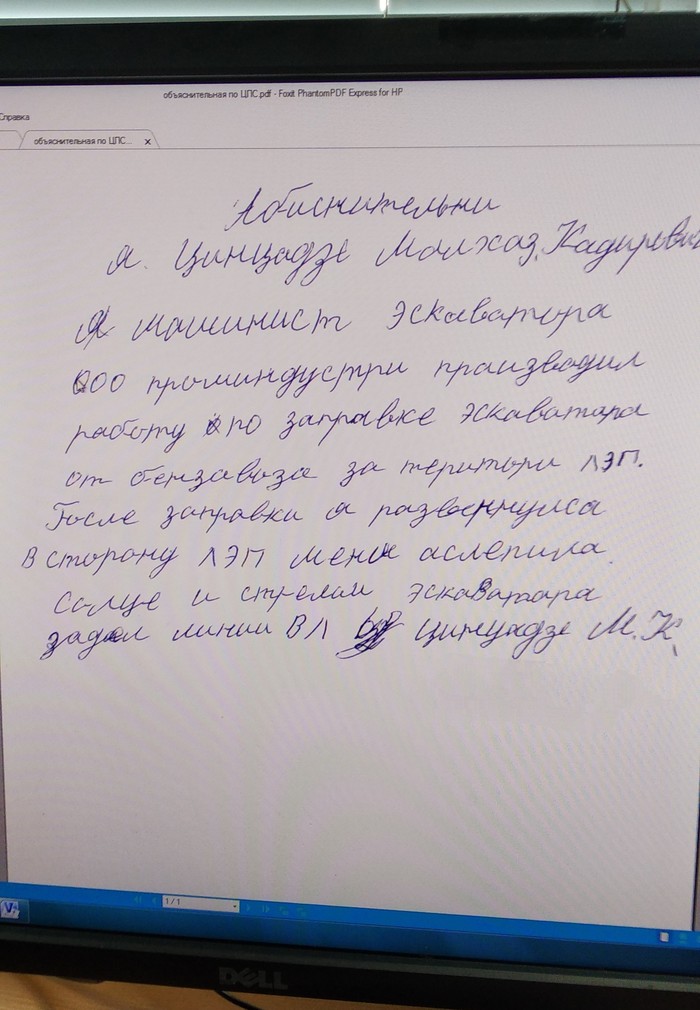 объяснительная по ЦПС.pdf - Foxit PhantomPDF Express for HP
Справка
объяснительная по ЦПС... x
Абиснительни
я. Цинцадзе Малхаз Кадирович
Я машинист эскаватора
ООО проминдустри производил
работу по заправке эскаватара
от бензавоза за територи ЛЭП.
После заправки я развернулса
В сторону ЛЭП меня аслепила
Солце и стрелай эскаватара
задел линии ВЛ Цинцадзе М.К.
1/1
DELL